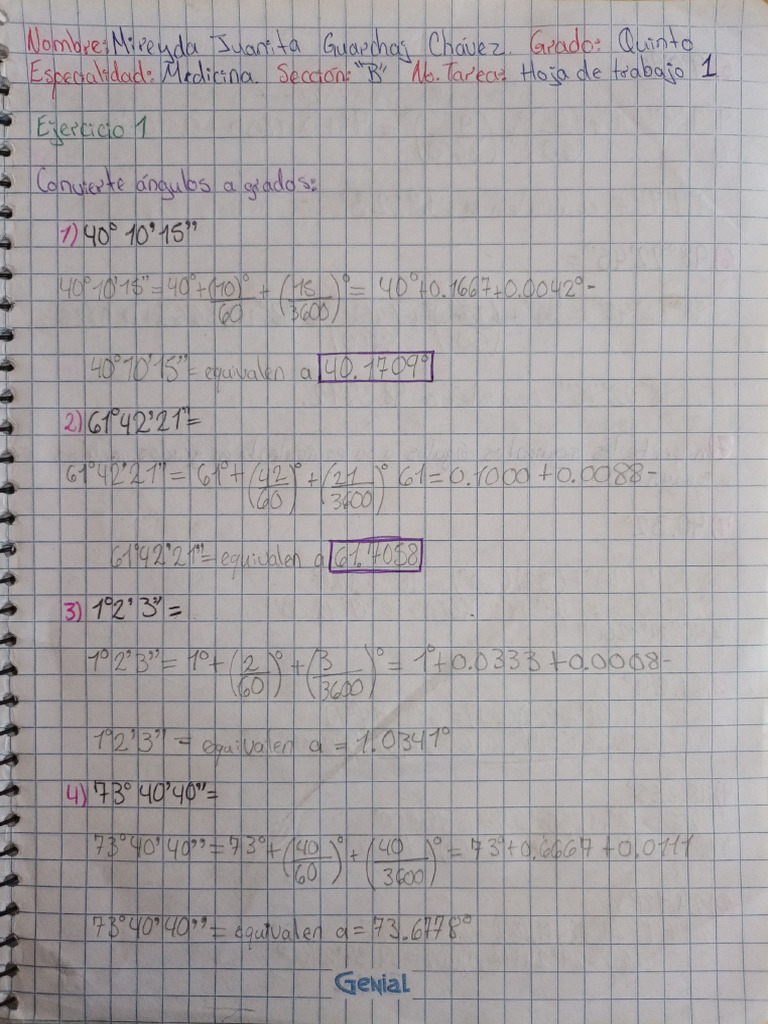 Nombre: Mireyda Juanita Guarchaj Chávez. Grado: Quinto
Especialidad: Medicina. Sección: "B" No. Tarea: Hoja de trabajo 1
Ejercicio 1
Convierte ángulos a grados:
1) 40° 10' 15''
40°10'15'' = 40° + (10/60)° + (15/3600)° = 40° + 0.1667 + 0.0042° -
40°10'15'' = equivalen a 40.1709°
2) 61°42'21'' =
61°42'21'' = 61° + (42/60)° + (21/3600)° 61 = 0.1000 + 0.0088 -
61°42'21'' = equivalen a 61.7058
3) 1°2' 3'' =
1°2'3'' = 1° + (2/60)° + (3/3600)° = 1° + 0.0333 + 0.0008 -
1°2'3'' = equivalen a = 1.0341°
4) 73° 40'40'' =
73°40'40'' = 73° + (40/60)° + (40/3600)° = 73° + 0.6667 + 0.0111
73°40'40'' = equivalen a = 73.6778°
Genial